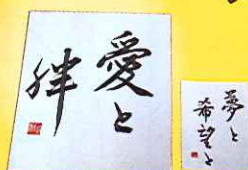 愛と
絆
夢と
希望と